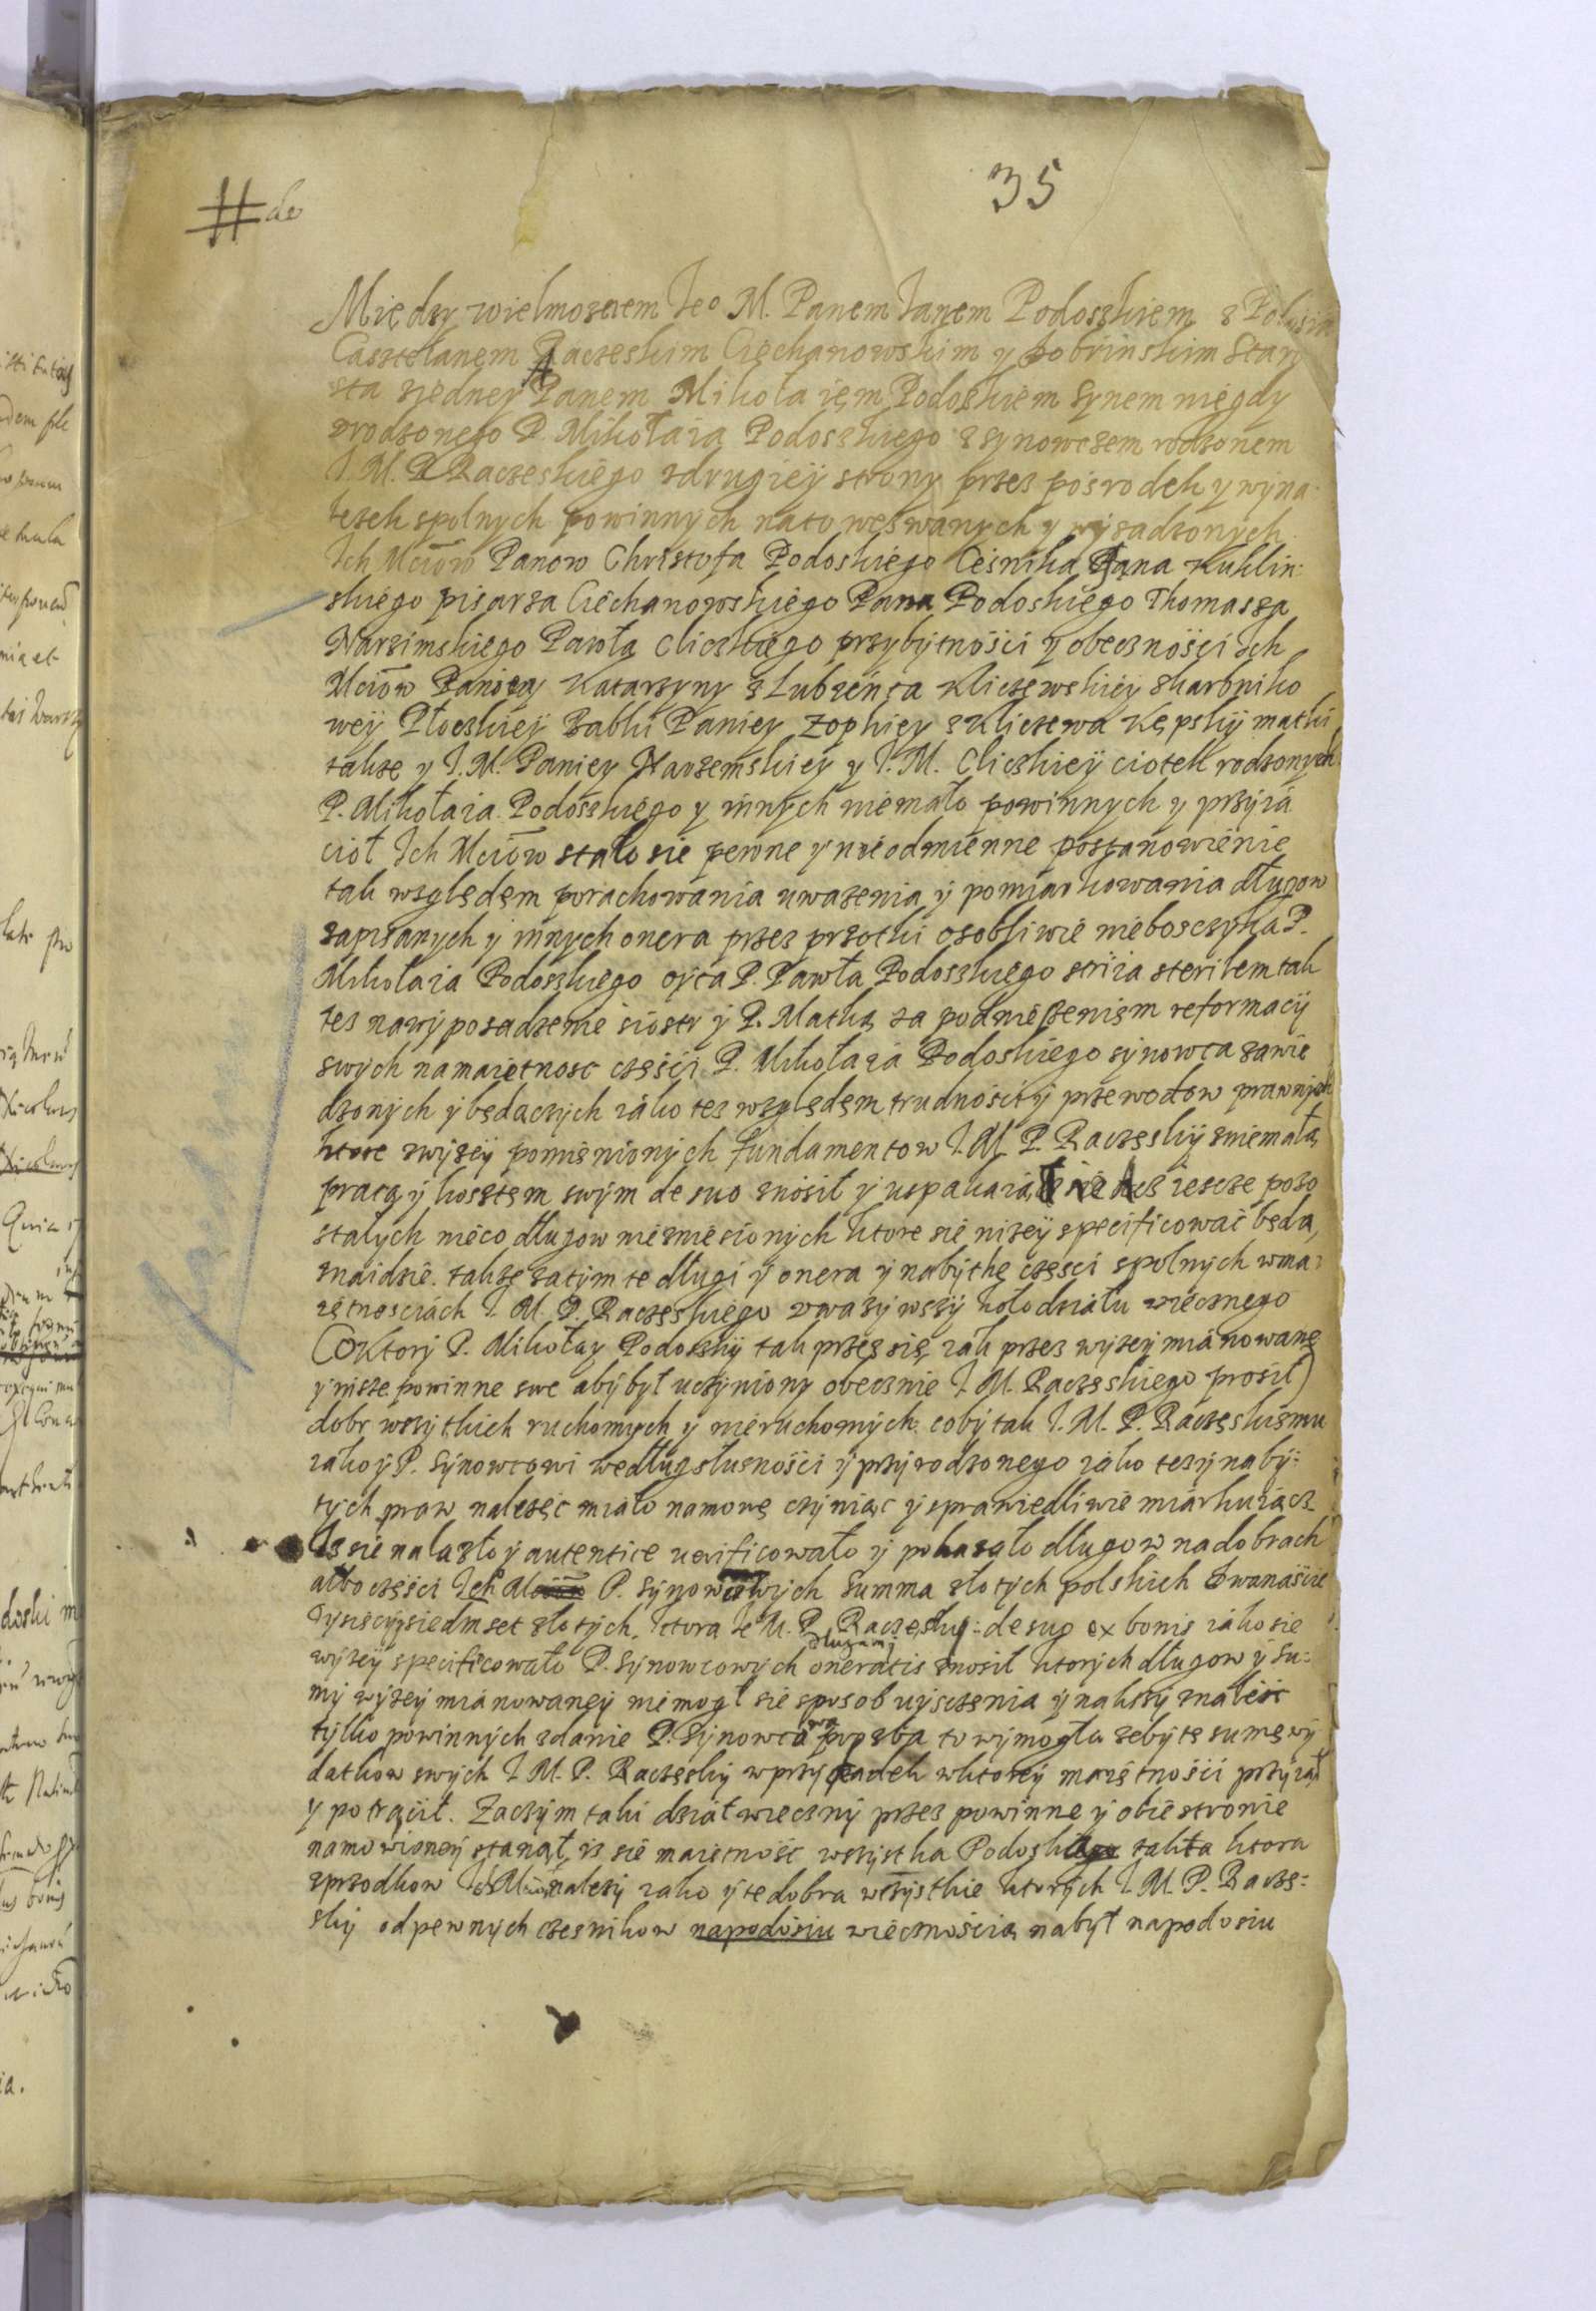 35
# de
Między wielmoznem Ieo M. Panem Janem Podoszkiem z Podosia
Casztelanem Raczeskim Ciechanowskim y Dobrinskim Staro
sta zjedney Panem Mikołaięm Podoskiem synem niegdy
vrodzonego P. Mikołaia Podoszkiego z synowczem rodzonem
I. M. P. Raczeskiego zdrugieÿ strony przez posrodek y wÿna
lezek spolnych powinnych nato wezwanych y wÿsadzonych
Ich Mciow Panow Christofa Podoskiego Cesnika Pana Kuklin:
skiego pisarza Ciechanowskiego Pana Podoskiego Thomassa
Narzimskiego Pawła Cliczkiego przybÿtnosci y obecznosci Ich
Mciow Paniey Katarzyny z Lubienca Kliczewskieÿ Skarbniko
weÿ Płoczkieÿ Babki Paniey Zophiey z Kliczewa Kępskiÿ matki
takze y I. M. Paniey Narzemskiey y I. M. Cliczkieÿ ciotek rodzonych
P. Mikołaia Podoszkiego y innÿch niemało powinnych y przÿia
cioł Ich Mciow stało sie pewne ÿ nieodmienne postanowienie
tak względem porachowania uwazenia ÿ pomiarkowania długow
zapisanych ÿ innÿch onera przez przotki osobliwie nieboszczÿka P.
Mikołaia Podoszkiego oÿca P. Pawła Podoszkiego striia sterilem tak
tez na wÿposadzenie siostr ÿ P. Matką za podnieszenięm reformacÿ
swych na maiętnosc częsći P. Mikołaia Podoskiego sÿnowca zawie
dzonÿch ÿ będaczÿch iako tez względem trudnosci ÿ przewodow prawnÿch
ktore zwÿzeÿ pomięnionÿch fundamentow I. M. P. Raczęskÿ zniemałą
pracą ÿ kosztem swÿm de suo znosił ÿ uspakaiał iescze pozo
stałych nieco długow niezniesionÿch ktore sie nizeÿ specificowac będa
znaidzie. takze zatÿm te długi ÿ onera ÿ nabÿthe częsci spolnÿch w ma
iętnosciach I. M. P. Raczęskiego vwazÿwszÿ koło działu wiecznego
(O ktorÿ P. Mikołaÿ Podoskÿ tak przez się iak przez wÿzeÿ mianowane
ÿ nisze powinne swe abÿ bÿł uczÿnionÿ obecznie I. M. Raczęskiego prosił)
dobr wszÿtkich ruchomych y nieruchomÿch cobÿ tak I. M. P. Raczęskięmu
iako ÿ P. Sÿnowcowi według słusnosci ÿ przÿrodzonego iako tez ÿ nabÿ:
tÿch praw nalezęc miało namowę czÿniąc ÿ sprawiedliwie miarkuiącz
Iz sie nalazło ÿ autentice verificowało ÿ pokasało długow na dobrach
albo częsci P. Sÿnowcowÿch Summa złotÿch polskich dwanascie
Tÿsięcÿ siedmset złotÿch, ktora Ie M. P. Raczeskÿ de suo ex bonis iako sie
wÿzeÿ specificowało P. Sÿnowcowÿch długamj oneratis znosił ktorÿch długow ÿ Su:
mÿ wÿzeÿ mianowaneÿ niemogł sie sposob uÿsczenia ÿ nalszÿ znaleśc
tÿlko powinnÿch zdanie P. Sÿnowca prozba to wÿmogła zebÿ tę sumę wÿ
datkow swÿch I. M. P. Raczęskÿ w przÿpadek w ktoreÿ maiętnosci przÿiął
y potrąćił. Zaczÿm taki dział wiecznÿ przez powinne ÿ obie stronie
namowioneÿ stanął, iz sie maiętnosc wszÿstka Podoska ktora
zprzodkow Ich Mciow nalezÿ iako ÿ te dobra wszÿstkie ktorÿch I. M. P. Raczę:
skÿ od pewnych czesnikow na podosiu wiecznoscią nabÿł na podosiu